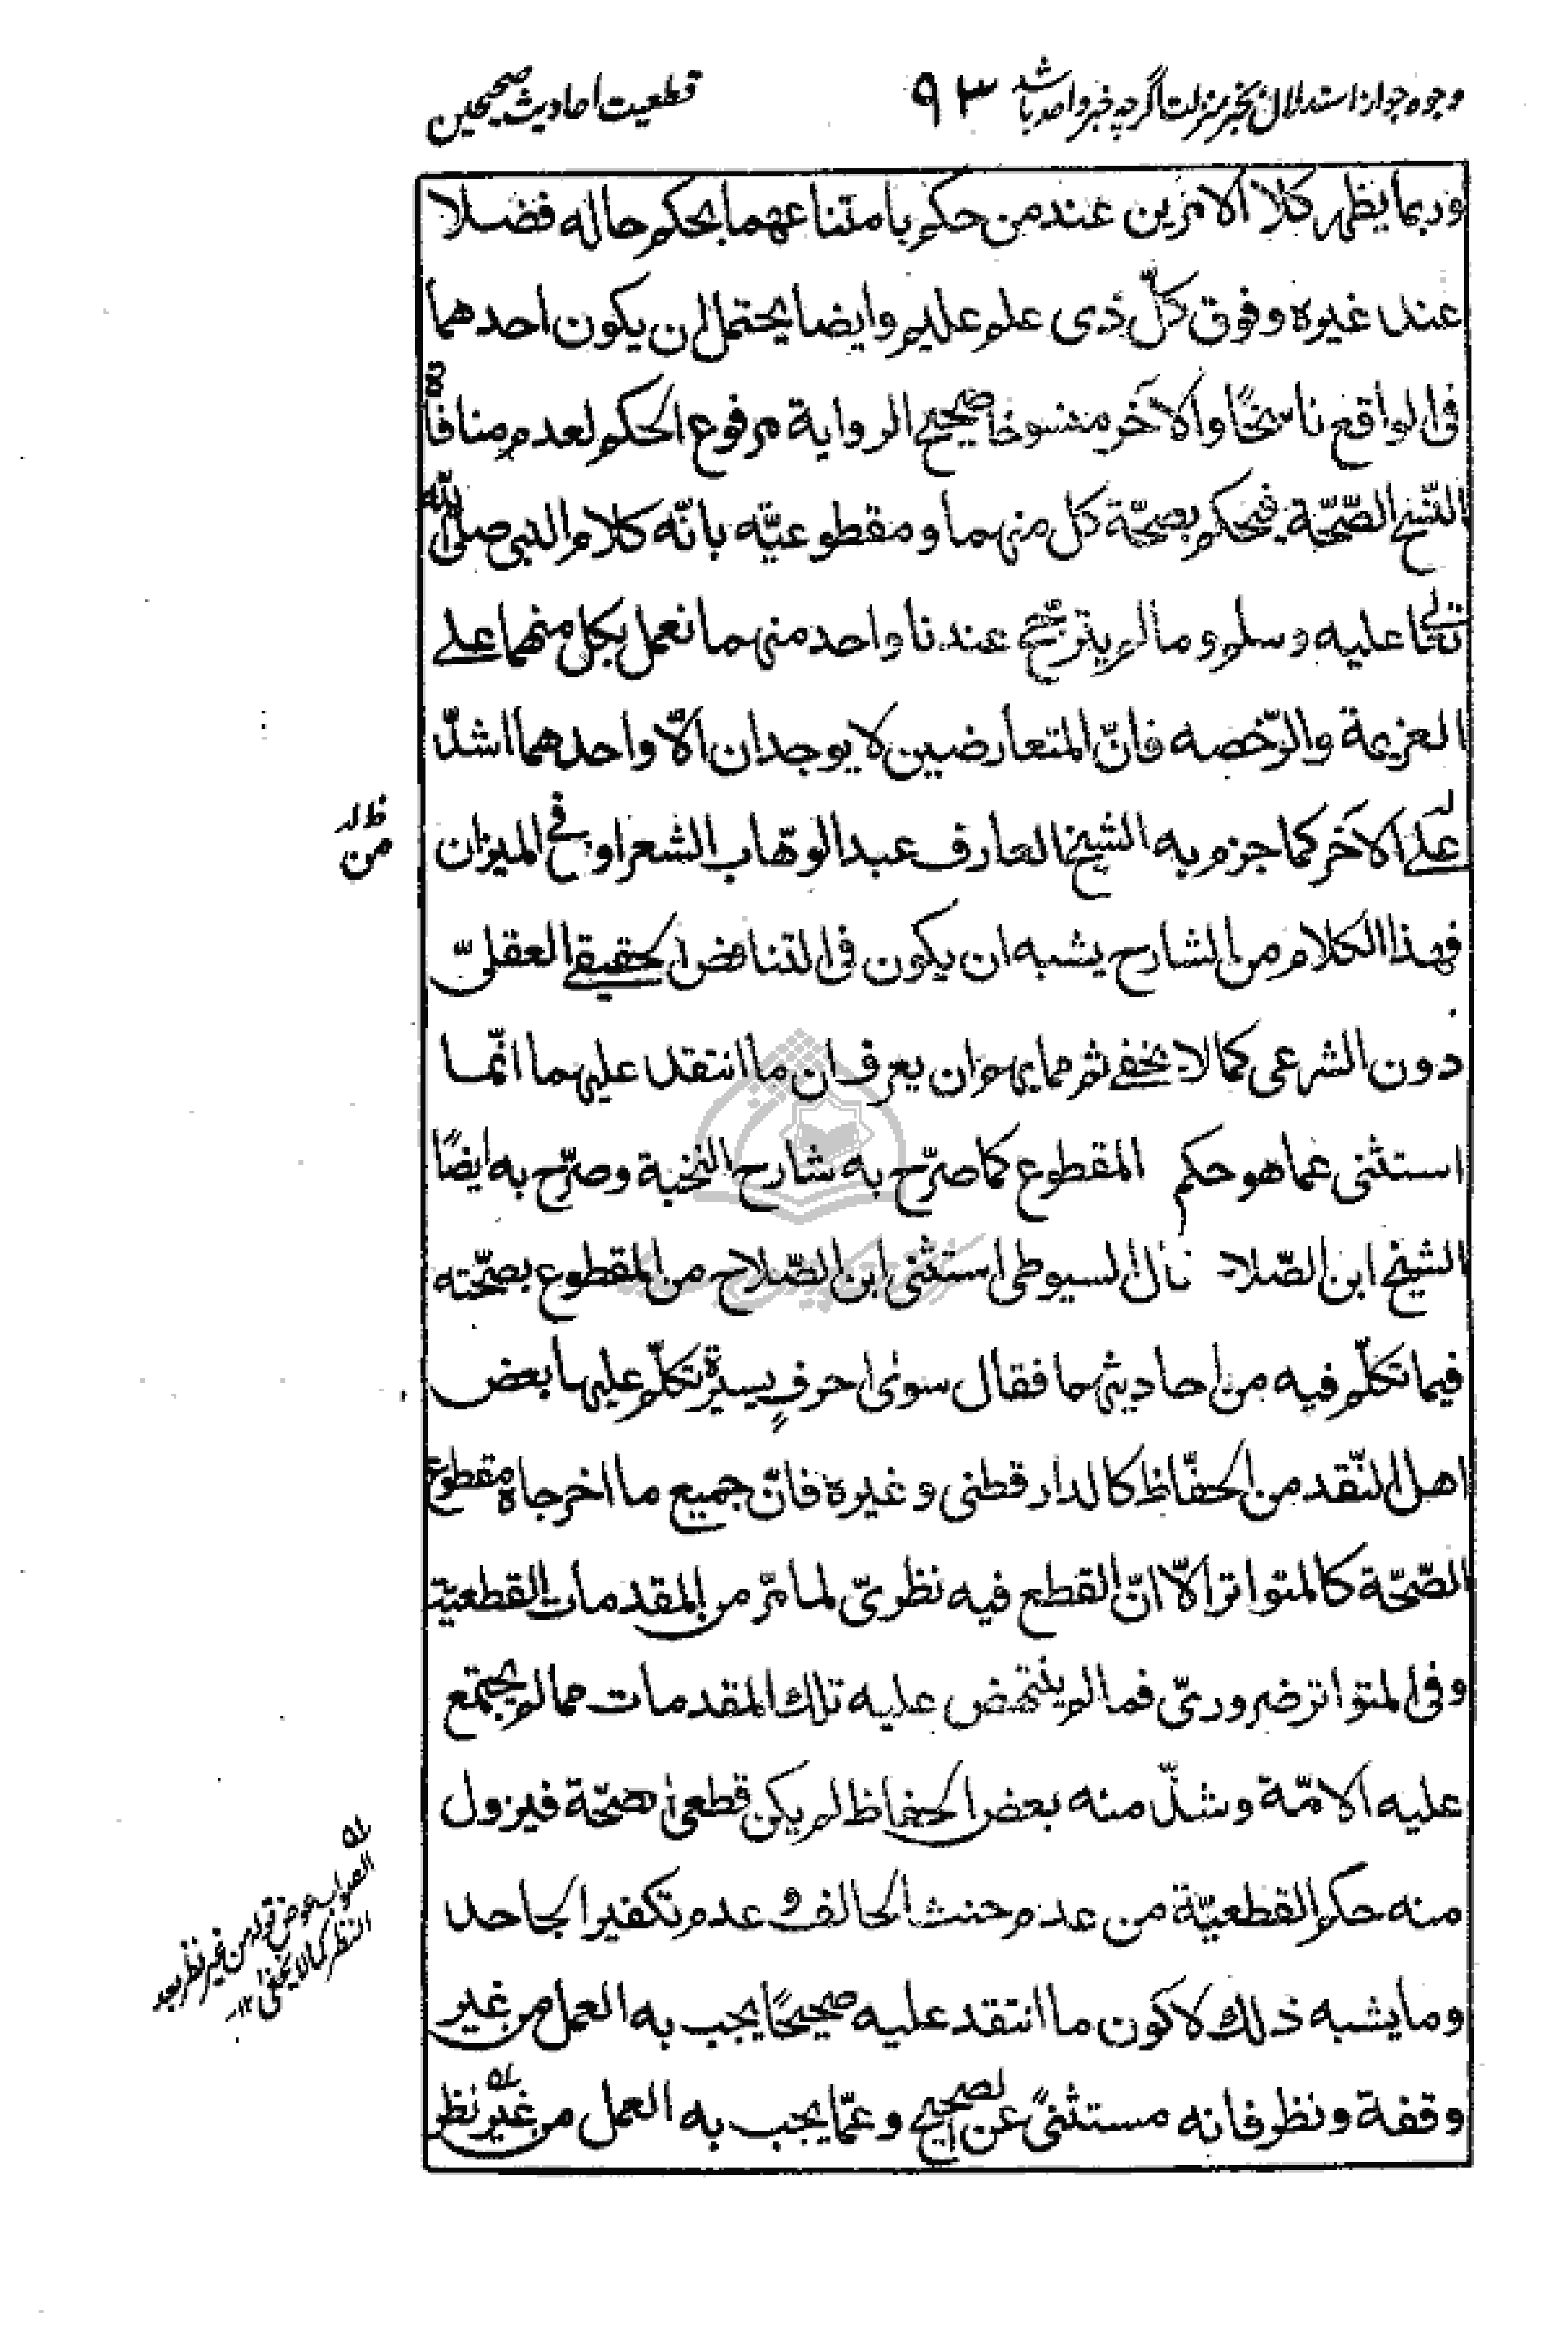 وجوه جواز استدلال بخبر منزلت اگرچه خبر واحد باشد ٩٣ قطعیت احادیث صحیحین
وربما يظهر كلا الامرين عند من حكم بامتناعهما بحكم حاله فضلا
عند غيره وفوق كلّ ذى علم عليم وايضا يحتمل ان يكون احدهما
فى الواقع ناسخًا والآخر منسوخا صحيح الرواية مرفوع الحكم لعدم منافاة
النّسخ الصّحّة فيحكم بصحّة كل منهما ومقطوعيّه بانّه كلام النبى صلى اللّه
تعالى عليه وسلم وما لم يترجّح عندنا واحد منهما نعمل بكل منهما على
العزيمة والرّخصه فانّ المتعارضين لا يوجدان الّا واحدهما اشدّ
على الآخر كما جزم به الشيخ العارف عبد الوهّاب الشعراوى فى الميزان
ظ له
من
فهذا الكلام من الشارح يشبه ان يكون فى التناقض الحقيقى العقلىّ
دون الشرعى كما لا يخفى ثم مما يهم ان يعرف ان ما انتقد عليهما انّما
استثنى عما هو حكم المقطوع كما صرّح به شارح النخبة وصرّح به ايضًا
الشيخ ابن الصّلاح قال السيوطى استثنى ابن الصّلاح من المقطوع بصحّته
فيما تكلّم فيه من احاديثهما فقال سوى احرفٍ يسيرة تكلّم عليها بعض
اهل النّقد من الحفّاظ كالدارقطنى وغيره فانّ جميع ما اخرجاه مقطوع
الصّحّة كالمتواتر الّا انّ القطع فيه نظرىّ لما مرّ من المقدمات القطعيّة
وفى المتواتر ضرورىّ فما لم ينتهض عليه تلك المقدمات مما لم يجتمع
عليه الامّة وشذّ منه بعض الحفاظ لم يكن قطعى الصحّة فيزول
منه حكم القطعيّة من عدم حنث الحالف وعدم تكفير الجاحد
وما يشبه ذلك لا كون ما انتقد عليه صحيحًا يجب به العمل من غير
وقفة ونظر فانه مستثنىً عن الصحيح وعمّا يجب به العمل من غير نظر
الصواب عوض قوله من غير نظر بعد
النظر كما لا يخفى ١٢